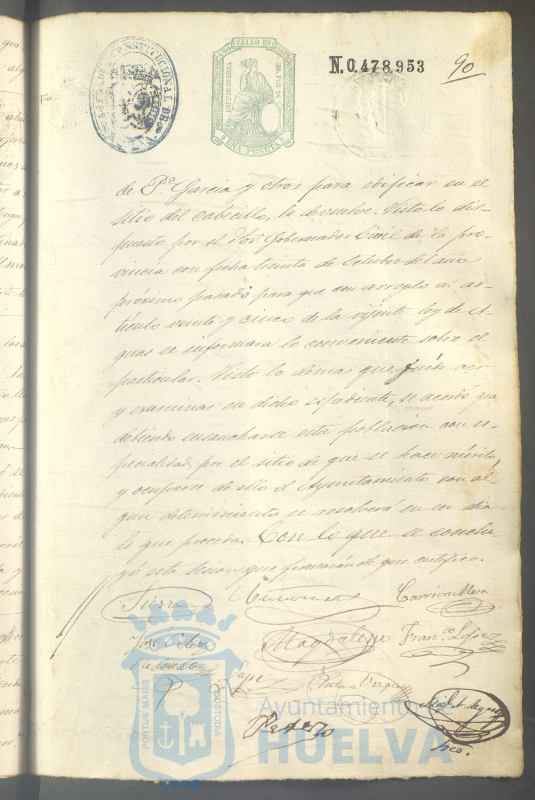 N. 0,478,953
90
UNA PESETA
de Pª García y otros para edificar en el
sitio del cabecillo, lo devuelve. Visto lo dis-
puesto por el Sor. Gobernador Civil de la pro-
vincia con fecha treinta de Octubre del año
próximo pasado para que con arreglo al ar-
tículo veinte y cinco de la vijente ley de A-
guas se informara lo conveniente sobre el
particular. Visto lo demas que fué de ver
y examinar en dicho espediente, se acordó que
debiendo ensancharse esta población con es-
pecialidad por el sitio de que se hace mérito,
y ocuparse de ello el Ayuntamiento con al
gun detenimiento se resolverá en su dia
lo que proceda. Con lo que se conclu-
yó esta sesion que firmarán de que certifico.
Tierra
Carrion Mora
José
Magdalena
Franco. Lopez
Lopez
Perez
Srio.
PORTUS MARIS
CUSTODIA
Ayuntamiento
HUELVA